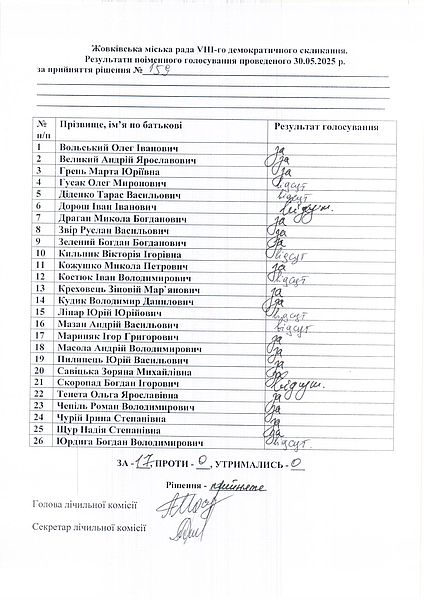 Жовківська міська рада VIII-го демократичного скликання.
Результати поіменного голосування проведеного 30.05.2025 р.
за прийняття рішення № 159
№ п/п Прізвище, ім’я по батькові Результат голосування
1 Вольський Олег Іванович за
2 Великий Андрій Ярославович за
3 Грень Марта Юріївна за
4 Гусак Олег Миронович відсут
5 Діденко Тарас Васильович відсут
6 Дорош Іван Іванович відсут.
7 Драган Микола Богданович за
8 Звір Руслан Васильович за
9 Зелений Богдан Богданович за
10 Кильник Вікторія Ігорівна відсут
11 Кожушко Микола Петрович за
12 Костюк Іван Володимирович відсут
13 Креховець Зіновій Мар`янович за
14 Кудик Володимир Данилович за
15 Лінар Юрій Юрійович відсут
16 Мазан Андрій Васильович відсут
17 Мариняк Ігор Григорович за
18 Масола Андрій Володимирович за
19 Пилипець Юрій Васильович за
20 Савіцька Зоряна Михайлівна за
21 Скоропад Богдан Ігорович відсут.
22 Тенета Ольга Ярославівна за
23 Чепіль Роман Володимирович за
24 Чурій Ірина Степанівна за
25 Щур Надія Степанівна за
26 Юрдига Богдан Володимирович відсут.
ЗА - 17, ПРОТИ - 0, УТРИМАЛИСЬ - 0
Рішення - прийняте
Голова лічильної комісії
Секретар лічильної комісії